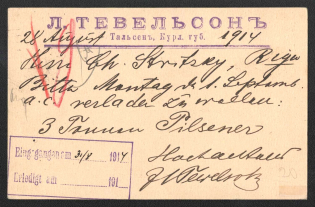 Л. ТЕВЕЛЬСОНЪ
Тальсенъ, Курл. губ.
28 August 1914
Herrn Ch. Stritzky, Riga
Bitte Montag d. 1. Septemb.
a.c. verladen zu wollen:
3 Tonnen Pilsener
Hochachtend
Eingegangen am 31/8 1914
Erledigt am 191